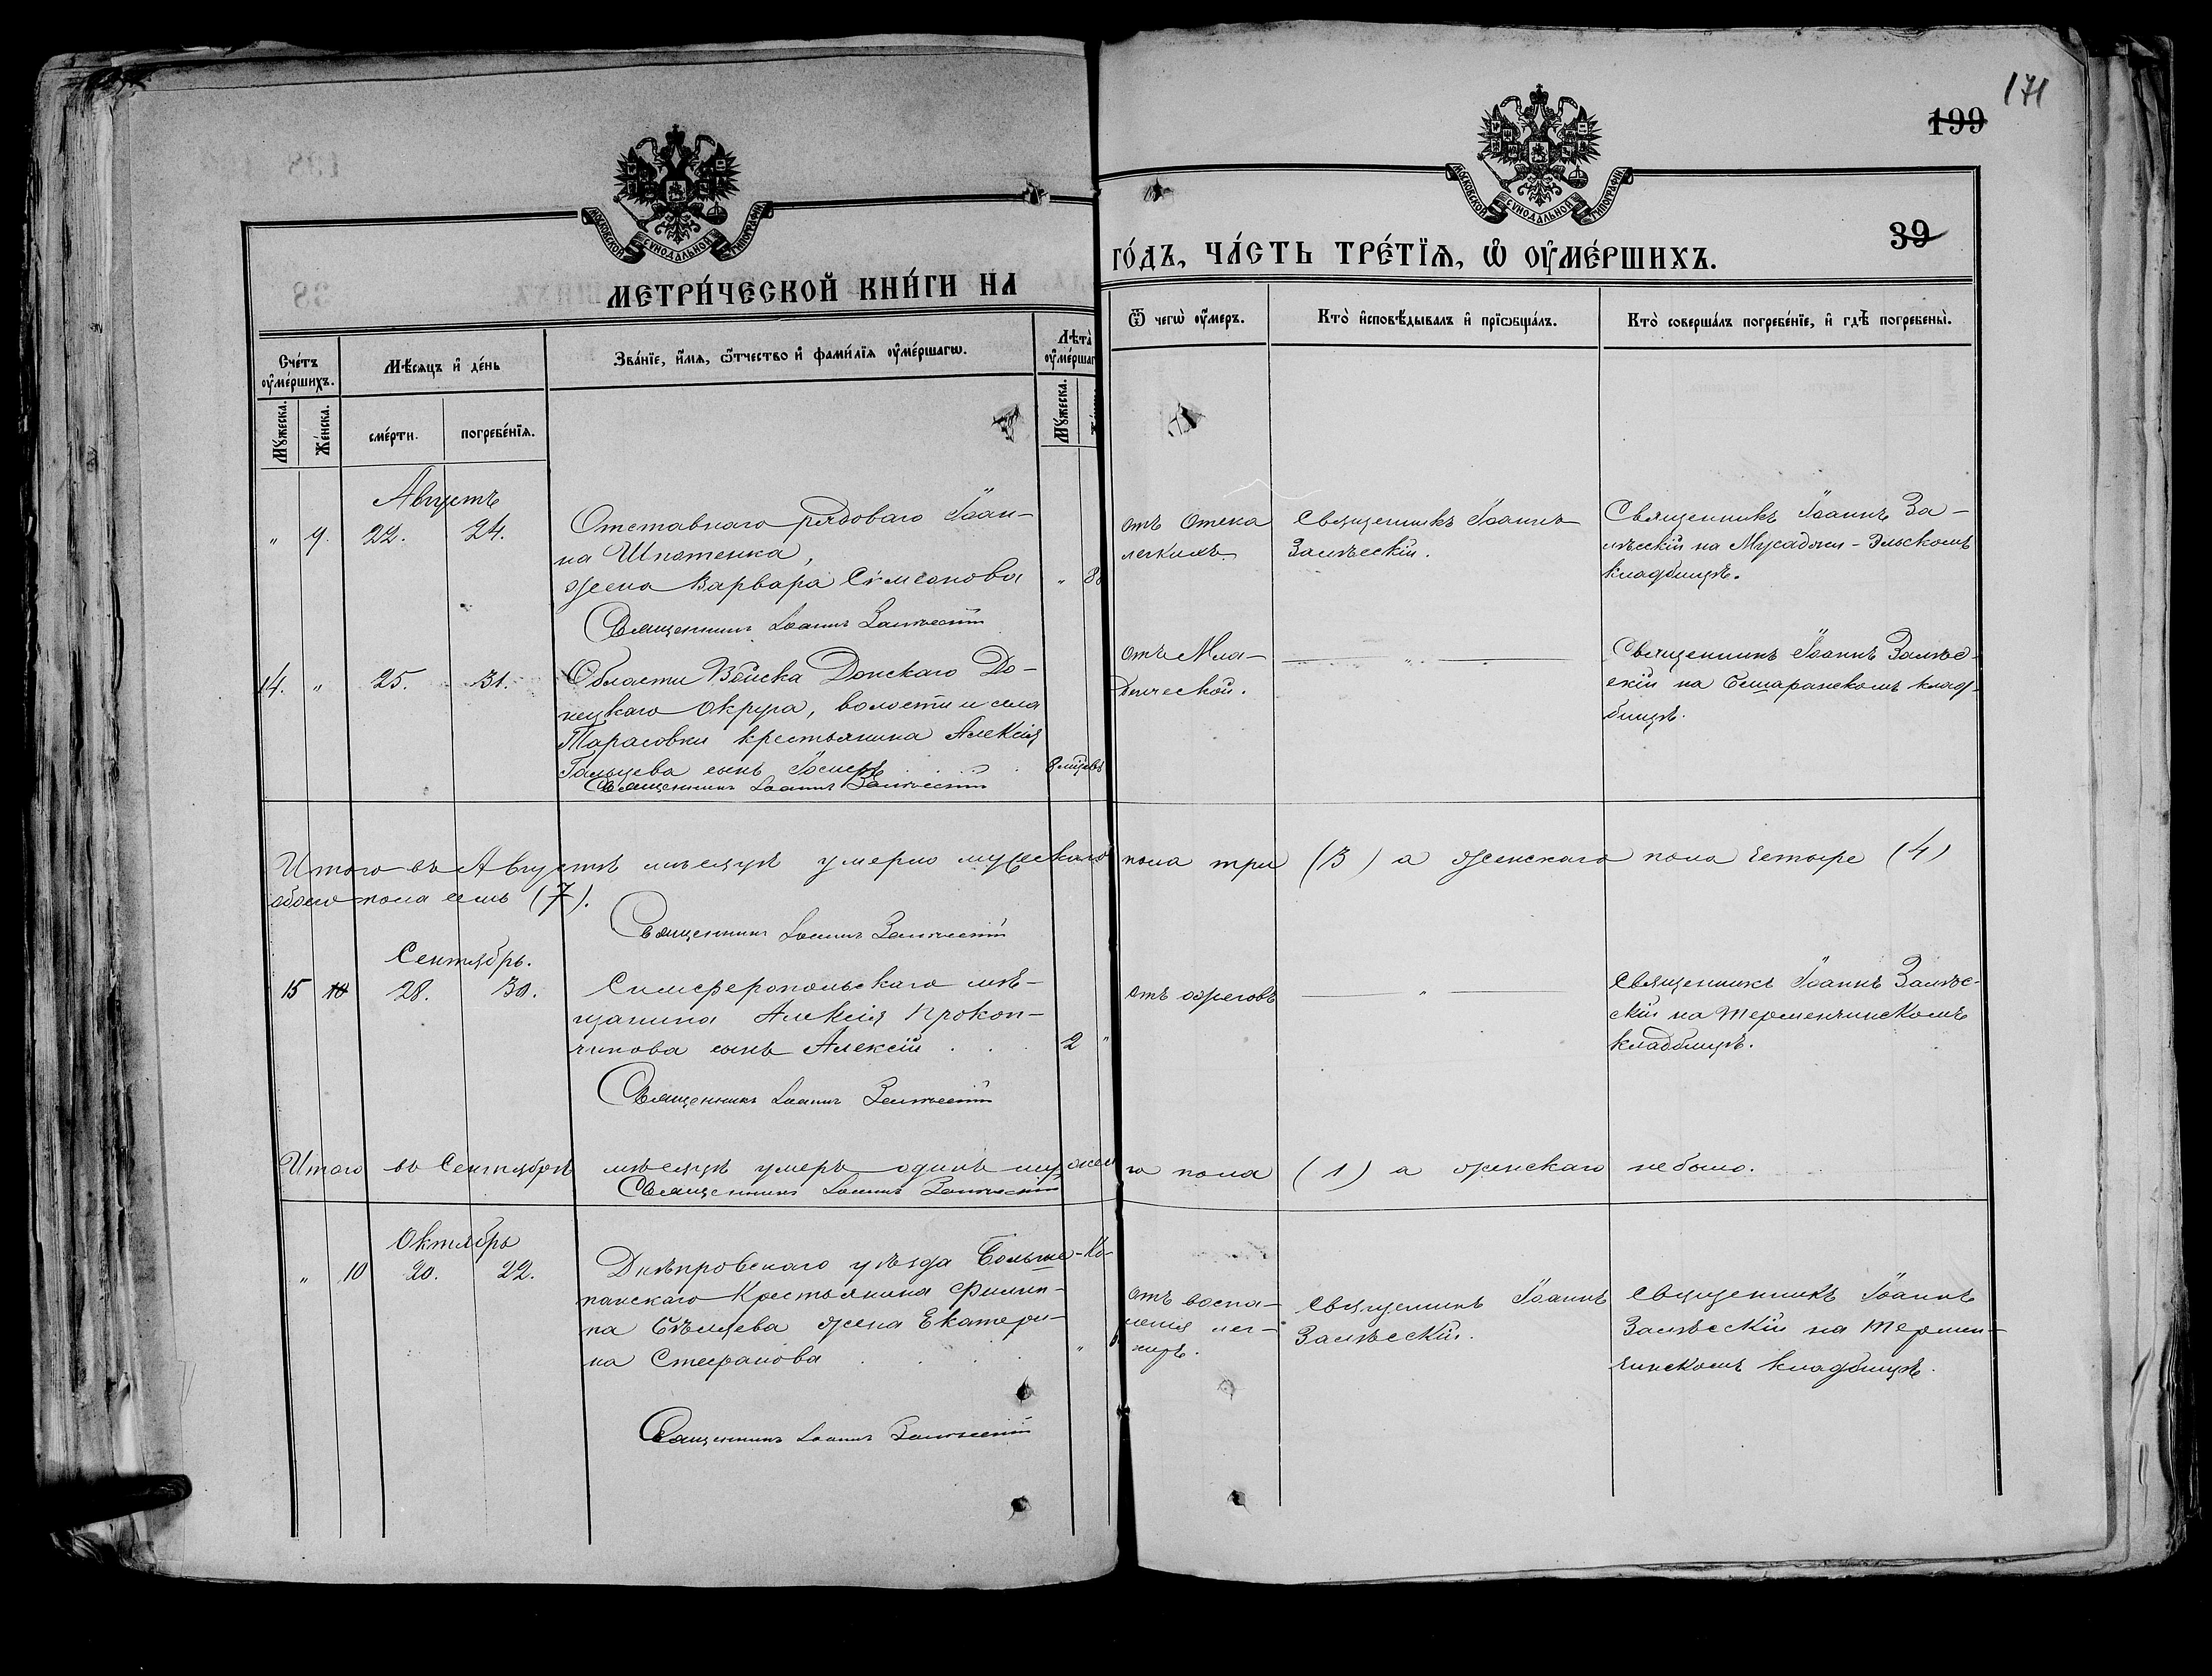 171
199
39
МОСКОВСКОЙ СѴНОДАЛЬНОЙ ТИПОГРАФІИ
МОСКОВСКОЙ СѴНОДАЛЬНОЙ ТИПОГРАФІИ
МЕТРИ́ЧЕСКОЙ КНИ́ГИ НА
ГО́ДЪ, ЧА́СТЬ ТРЕ́ТЇѦ, Ѡ҆ ОУ҆МЕ́РШИХЪ.
Сче́тъ оу҆ме́ршихъ.
Мѣ́сяцъ и҆ де́нь
Зва́нїе, и҆́мѧ, ѻ҆́тчество и҆ фами́лїѧ оу҆ме́ршагѡ.
Лѣ́та оу҆ме́ршаг
Ѿ чегѡ̀ оу҆́меръ.
Кто̀ и҆сповѣ́дывалъ и҆ прїѡбща́лъ.
Кто̀ соверша́лъ погребе́нїе, и҆ гдѣ̀ погребены̀.
Мꙋ́жеска.
Же́нска.
сме́рти.
погребе́нїѧ.
Мꙋ́жеска.
Августъ
" 9. 22. 24.
Отставнаго рядоваго Іоан-
на Шпотенка,
жена Варвара Симеонова " 8
Священникъ Іоаннъ Залѣсскій
отъ отека
легкихъ
Священникъ Іоаннъ
Залѣсскій.
Священникъ Іоаннъ За-
лѣсскій на
кладбищѣ.
14. " 25. 31.
Области Войска Донскаго До-
нецкаго округа, волости и села
Тарасовки крестьянина Алексія
Гальцева сынъ Іосифъ . . . 8 мѣсяцевъ
Священникъ Іоаннъ Залѣсскій
отъ Мла-
денческой.
"
Священникъ Іоаннъ Залѣс-
скій на Бешаранскомъ клад-
бищѣ.
Итого въ Августѣ мѣсяцѣ умерло мужескаго пола три (3) а женскаго пола четыре (4)
обоего пола семь (7).
Священникъ Іоаннъ Залѣсскій
Сентябрь.
15 10 28. 30.
Симферопольскаго мѣ-
щанина Алексія Прокоп-
чикова сынъ Алексій . . . 2 "
Священникъ Іоаннъ Залѣсскій
отъ ожеговъ
"
Священникъ Іоаннъ Залѣс-
скій на Терменчинскомъ
кладбищѣ.
Итого въ Сентябрѣ мѣсяцѣ умеръ одинъ мужеска го пола (1) а женскаго небыло.
Священникъ Іоаннъ Залѣсскій
Октябрь
" 10 20. 22.
Днѣпровскаго уѣзда Больше-Ко-
панскаго Крестьянина Филип-
па жена Екатери-
на Стефанова . . . . "
Священникъ Іоаннъ Залѣсскій
отъ воспа-
ленія лег-
кихъ.
Священникъ Іоаннъ
Залѣсскій.
Священникъ Іоаннъ
Залѣсскій на Термен-
чинскомъ кладбищѣ.